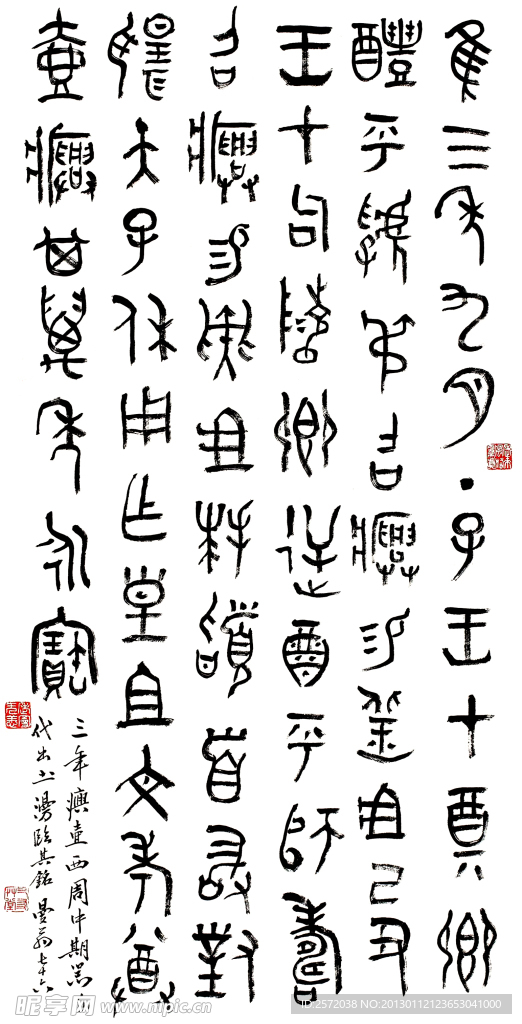 隹三年九月丁子王才奠鄉
醴乎虢弔召𤼈易羔俎己丑
王才句陵鄉逆酉乎師壽
召𤼈易彘俎拜稽首敢對
揚天子休用乍皇且文考尊
壺𤼈其萬年永寶
三年𤼈壺西周中期器近
代出土漫臨其銘曼翁七十六
昵享网 www.nipic.cn
ID:2572038 NO:20130112123653041000